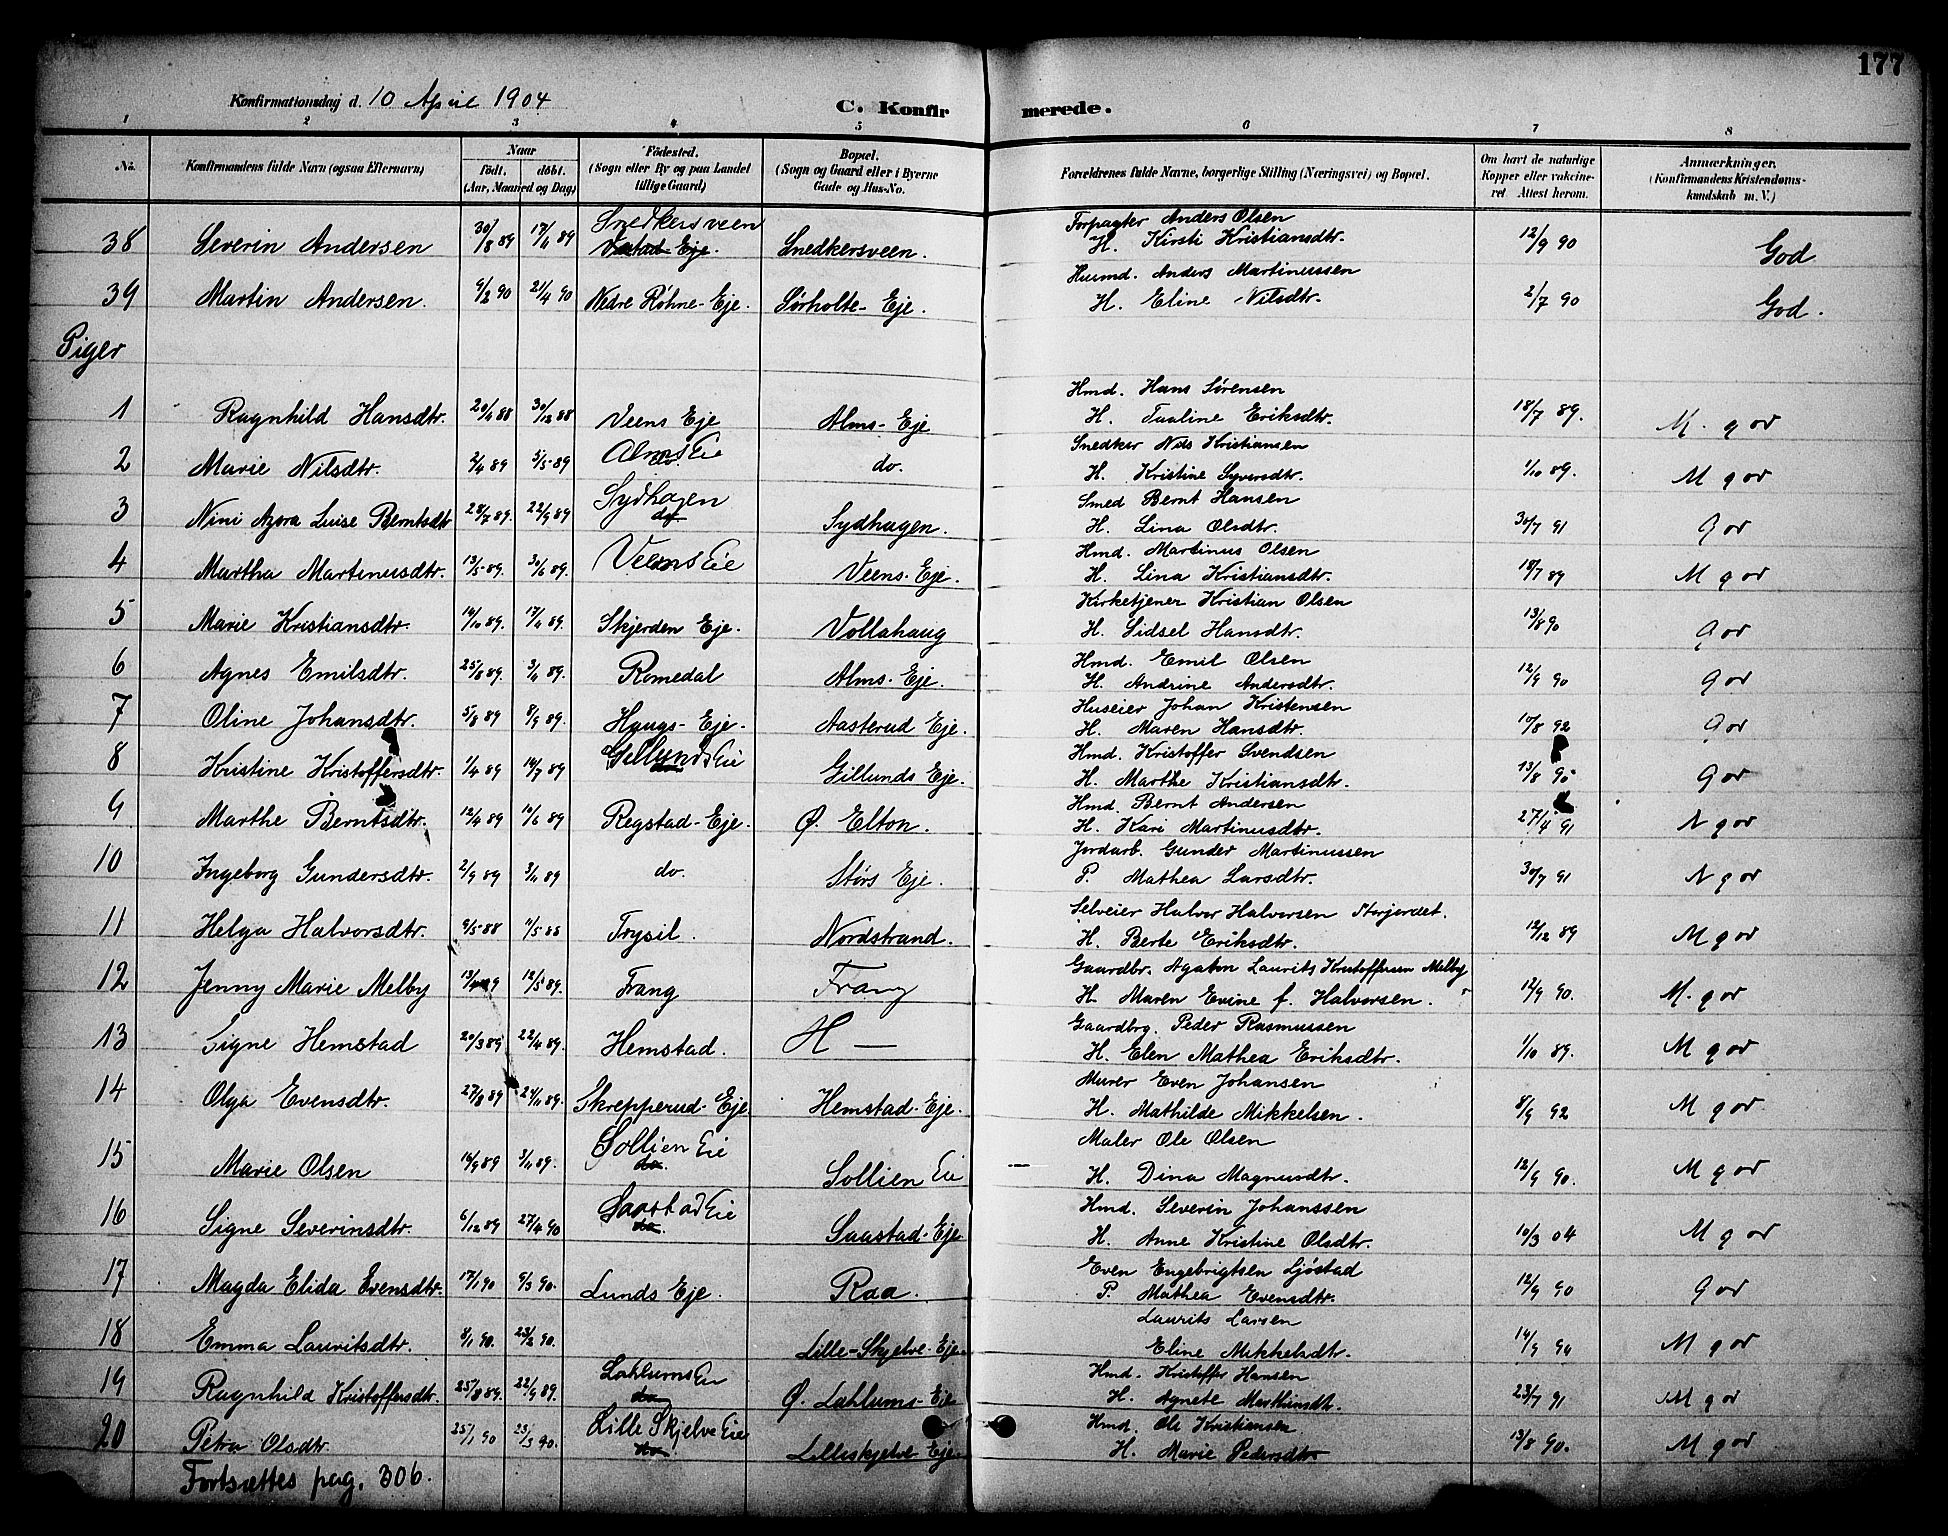 177
Konfirmationsdag d. 10 April 1904 C. Konfir merede.
1 2 3 4 5 6 7 8
No. Konfirmandens fulde Navn (ogsaa Efternavn) Naar født. døbt. (Aar, Maaned og Dag) Fødested. (Sogn eller By og paa Landet tillige Gaard) Bopæl. (Sogn og Gaard eller i Byerne Gade og Hus-No. Forældrenes fulde Navne, borgerlige Stilling (Næringsvei) og Bopæl. Om havt de naturlige Kopper eller vakcineret. Attest herom. Anmærkninger. (Konfirmandens Kristendomskundskab m. V.)
Snedkersveen Forpagter Anders Olsen
38 Severin Andersen 30/8 89 17/4 89 Eje. Snedkersveen. H. Kirsti Kristiansdtr. 12/9 90 God
Huusmd. Anders Martinussen
39 Martin Andersen. 9/2 90 21/4 90 Nedre Røhne-Eje. Sørholte-Eje. H. Eline Nilsdtr. 2/7 90 God.
Piger
Hmd. Hans Sørensen
1 Ragnhild Hansdtr. 20/4 88 30/12 88 Veens Eje Alms-Eje H. Pauline Eriksdtr. 18/7 89. M. gor
Alms Eie Snedker Nils Kristiansen
2 Marie Nilsdtr. 2/4 89 5/5 89 do. do. H. Kristine Syversdtr. 1/10 89. M gor
Sydhagen Smed Bernt Hansen
3 Nini Agora Luise Berntsdtr 28/7 89. 22/9 89 do Sydhagen. H. Lina Olsdtr. 30/7 91 gor
Hmd. Martinus Olsen
4 Martha Martinusdtr. 13/5 89. 30/6 89. Veens Eie Veens-Eje. H. Lina Kristiansdtr. 18/7 89 M gor
Kirketjener Kristian Olsen
5 Marie Kristiansdtr. 14/10 89. 17/11 89. Skjerden Eje. Vollahaug H. Sidsel Hansdtr. 13/8 90 gor
Hmd. Emil Olsen
6 Agnes Emilsdtr. 25/8 89. 3/11 89. Romedal Alms-Eje. H. Andrine Andersdtr. 12/9 90 gor
Huseier Johan Kristensen
7 Oline Johansdtr. 5/8 89 8/9 89. Haugs-Eje. Aasterud Eje. H. Maren Hansdtr. 10/8 92 gor
Hmd. Kristoffer Svendsen
8 Kristine Kristoffersdtr. 1/4 89 14/7 89 Gillunds Eie Gillunds Eje. H. Marthe Kristiansdtr. 13/8 90 gor
Hmd. Bernt Andersen
9 Marthe Berntsdtr. 12/4 89 10/6 89 Regstad-Eje. Ø. Elton. H. Kari Martinusdtr. 27/4 91 N gor
Jordarb. Gunder Martinussen
10 Ingeborg Gundersdtr. 2/9 89 3/11 89 do. Størs Eje. P. Mathea Larsdtr. 30/7 91 N gor
Selveier Halvor Halvorsen Storjordet.
11 Helga Halvorsdtr. 4/5 88 11/5 88 Trysil. Nordstrand. H. Berte Eriksdtr. 12/12 89 M gor
Gaardbr. Agaton Laurits Kristoffersen Melby
12 Jenny Marie Melby 12/5 89. Vang Vang H. Maren Evine f. Halvorsen. 12/9 90. M. gor
Gaardbrg. Peder Rasmussen
13 Signe Hemstad 20/3 89 22/4 89. Hemstad. H — H. Elen Mathea Eriksdtr. 1/10 89. M gor
Murer Even Johansen
14 Olga Evensdtr. 27/8 89 24/11 89. Skrepperud-Eje Hemstad-Eje. H. Mathilde Mikkelsen. 8/9 92 M gor
Sollien Eie Maler Ole Olsen
15 Marie Olsen 14/9 89 3/11 89. do. Sollien Eie H. Dina Magnusdtr. 12/9 90. M gor
Saastad Eie Hmd. Severin Johanssen
16 Signe Severinsdtr. 6/12 89 27/4 90 do. Saastad-Eje H. Anne Kristine Olsdtr. 10/3 04 M gor
Even Engebrigtsen Ljøstad
17 Magda Elida Evensdtr. 17/1 90 9/3 90. Lunds Eje. Raa. P. Mathea Evensdtr. 12/9 90 gor
Laurits Larsen
18 Emma Lauritsdtr. 8/1 90. 23/2 90. Lille-Skjelve-Eje Eline Mikkelsdtr. 14/9 90 M gor
Lahlums Eie Hmd. Kristoffer Hansen
19 Ragnhild Kristoffersdtr. 25/8 89. 22/9 89. do Ø. Lahlums-Eie H. Agnete 23/7 91 M gor
Lille Skjelve Eie Hmd. Ole Kristiansen
20 Petra Olsdtr. 25/1 90 23/3 90. do. Lilleskjelve-Eje. H. Marie Pedersdtr 13/8 90. M gor
Fortsættes pag. 306.